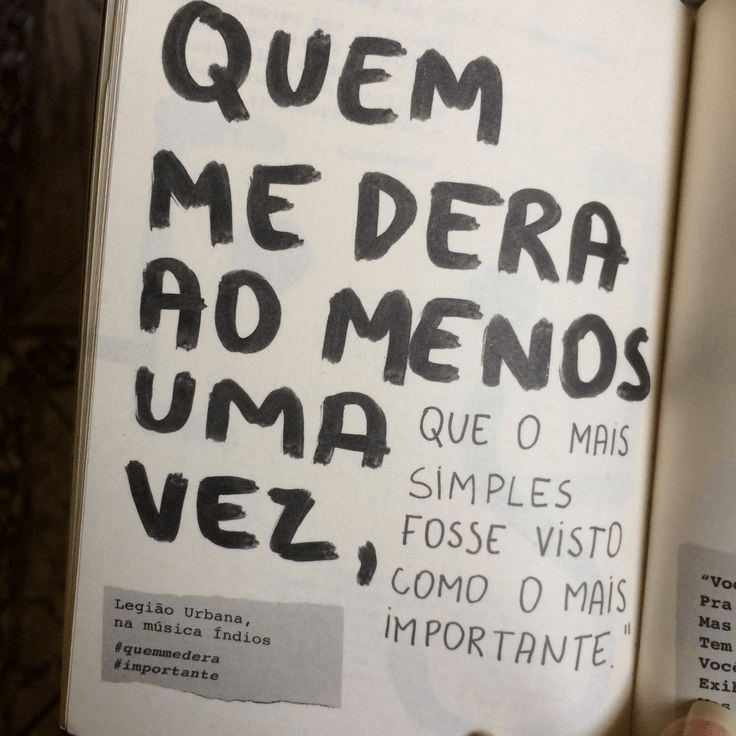 QUEM
ME DERA
AO MENOS
UMA
VEZ,
QUE O MAIS
SIMPLES
FOSSE VISTO
COMO O MAIS
IMPORTANTE."
Legião Urbana,
na música Índios
#quemmedera
#importante
Pra
Mas
Tem